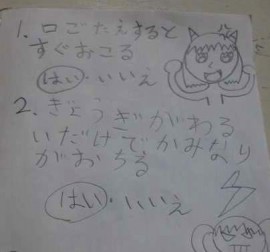 1. 口ごたえすると
すぐおこる
はい・いいえ
2. ぎょうぎがわる
いだけでかみなり
がおちる
はい・いいえ